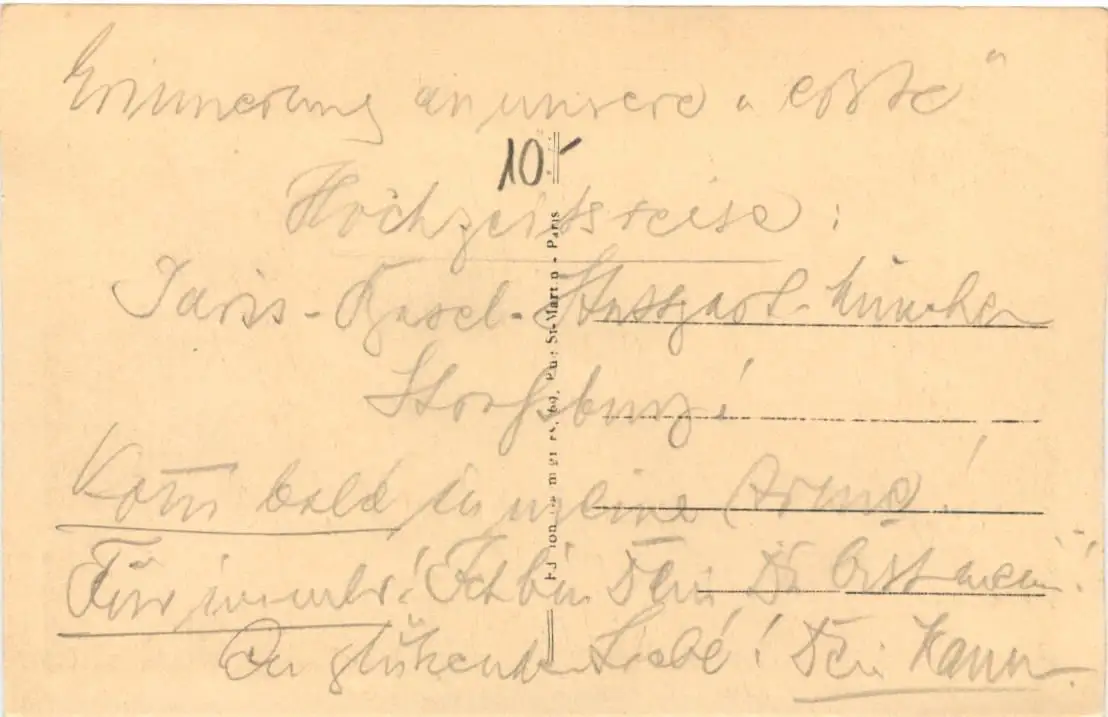 Erinnerung an unsere „erste"
10.-
Hochzeitsreise:
Paris - Basel - Stuttgart - München
Straßburg!
Kom̄ bald in meine Arme!
Für immer! Ich bin Dein Du bist mein!
In glühender Liebe! Dein Mann.
St-Martin - Paris